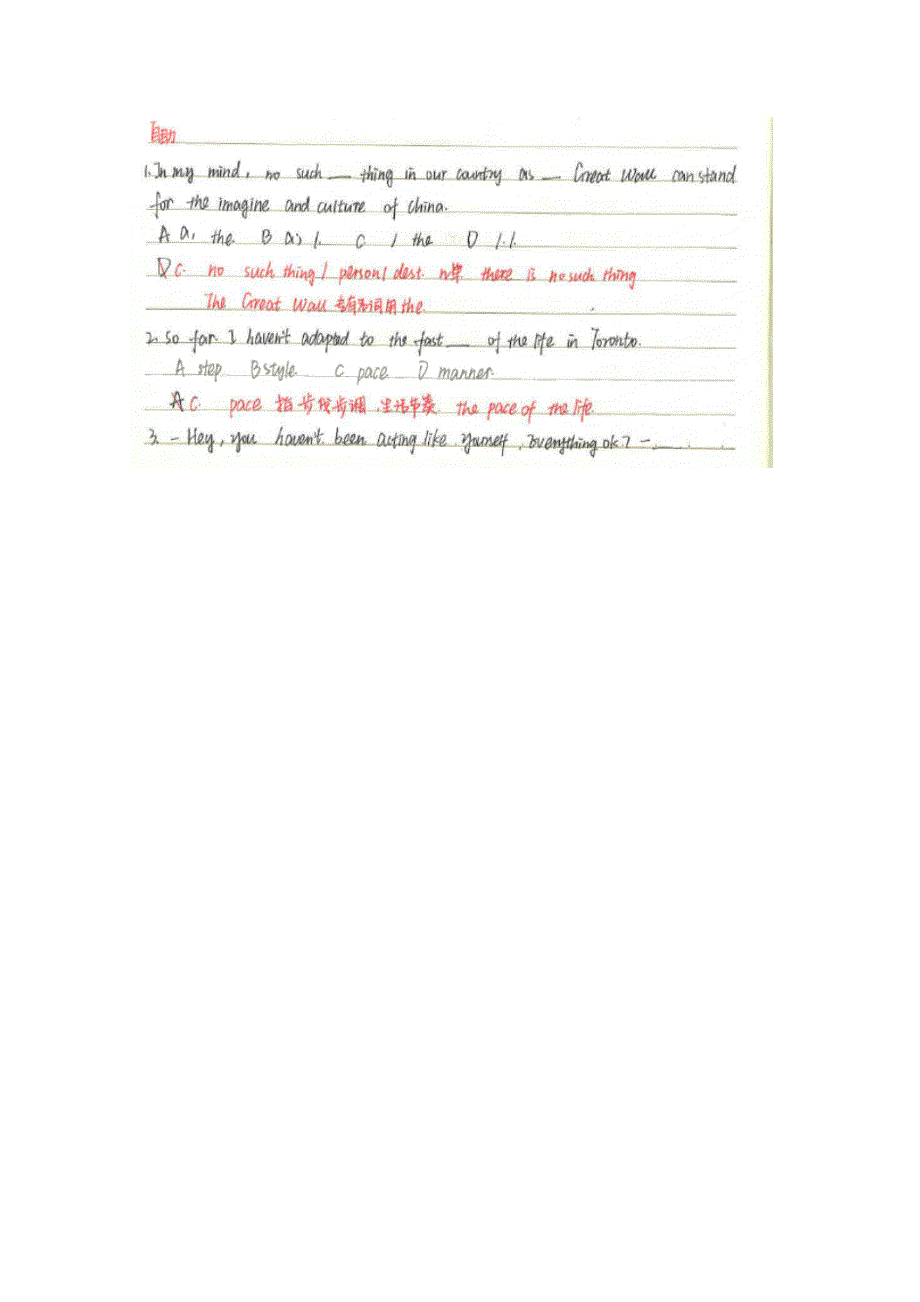 自助
1. In my mind, no such __ thing in our country as __ Great Wall can stand
for the imagine and culture of China.
A a, the. B a; /. C / the D /./.
D C. no such thing / person / desk n单 there is no such thing
The Great Wall 专有名词用the.
2. So far I haven't adapted to the fast __ of the life in Toronto.
A step B style C pace D manner.
A C. pace 指步伐步调, 生活节奏. the pace of the life.
3. - Hey, you haven't been acting like yourself, Everything ok? - ____